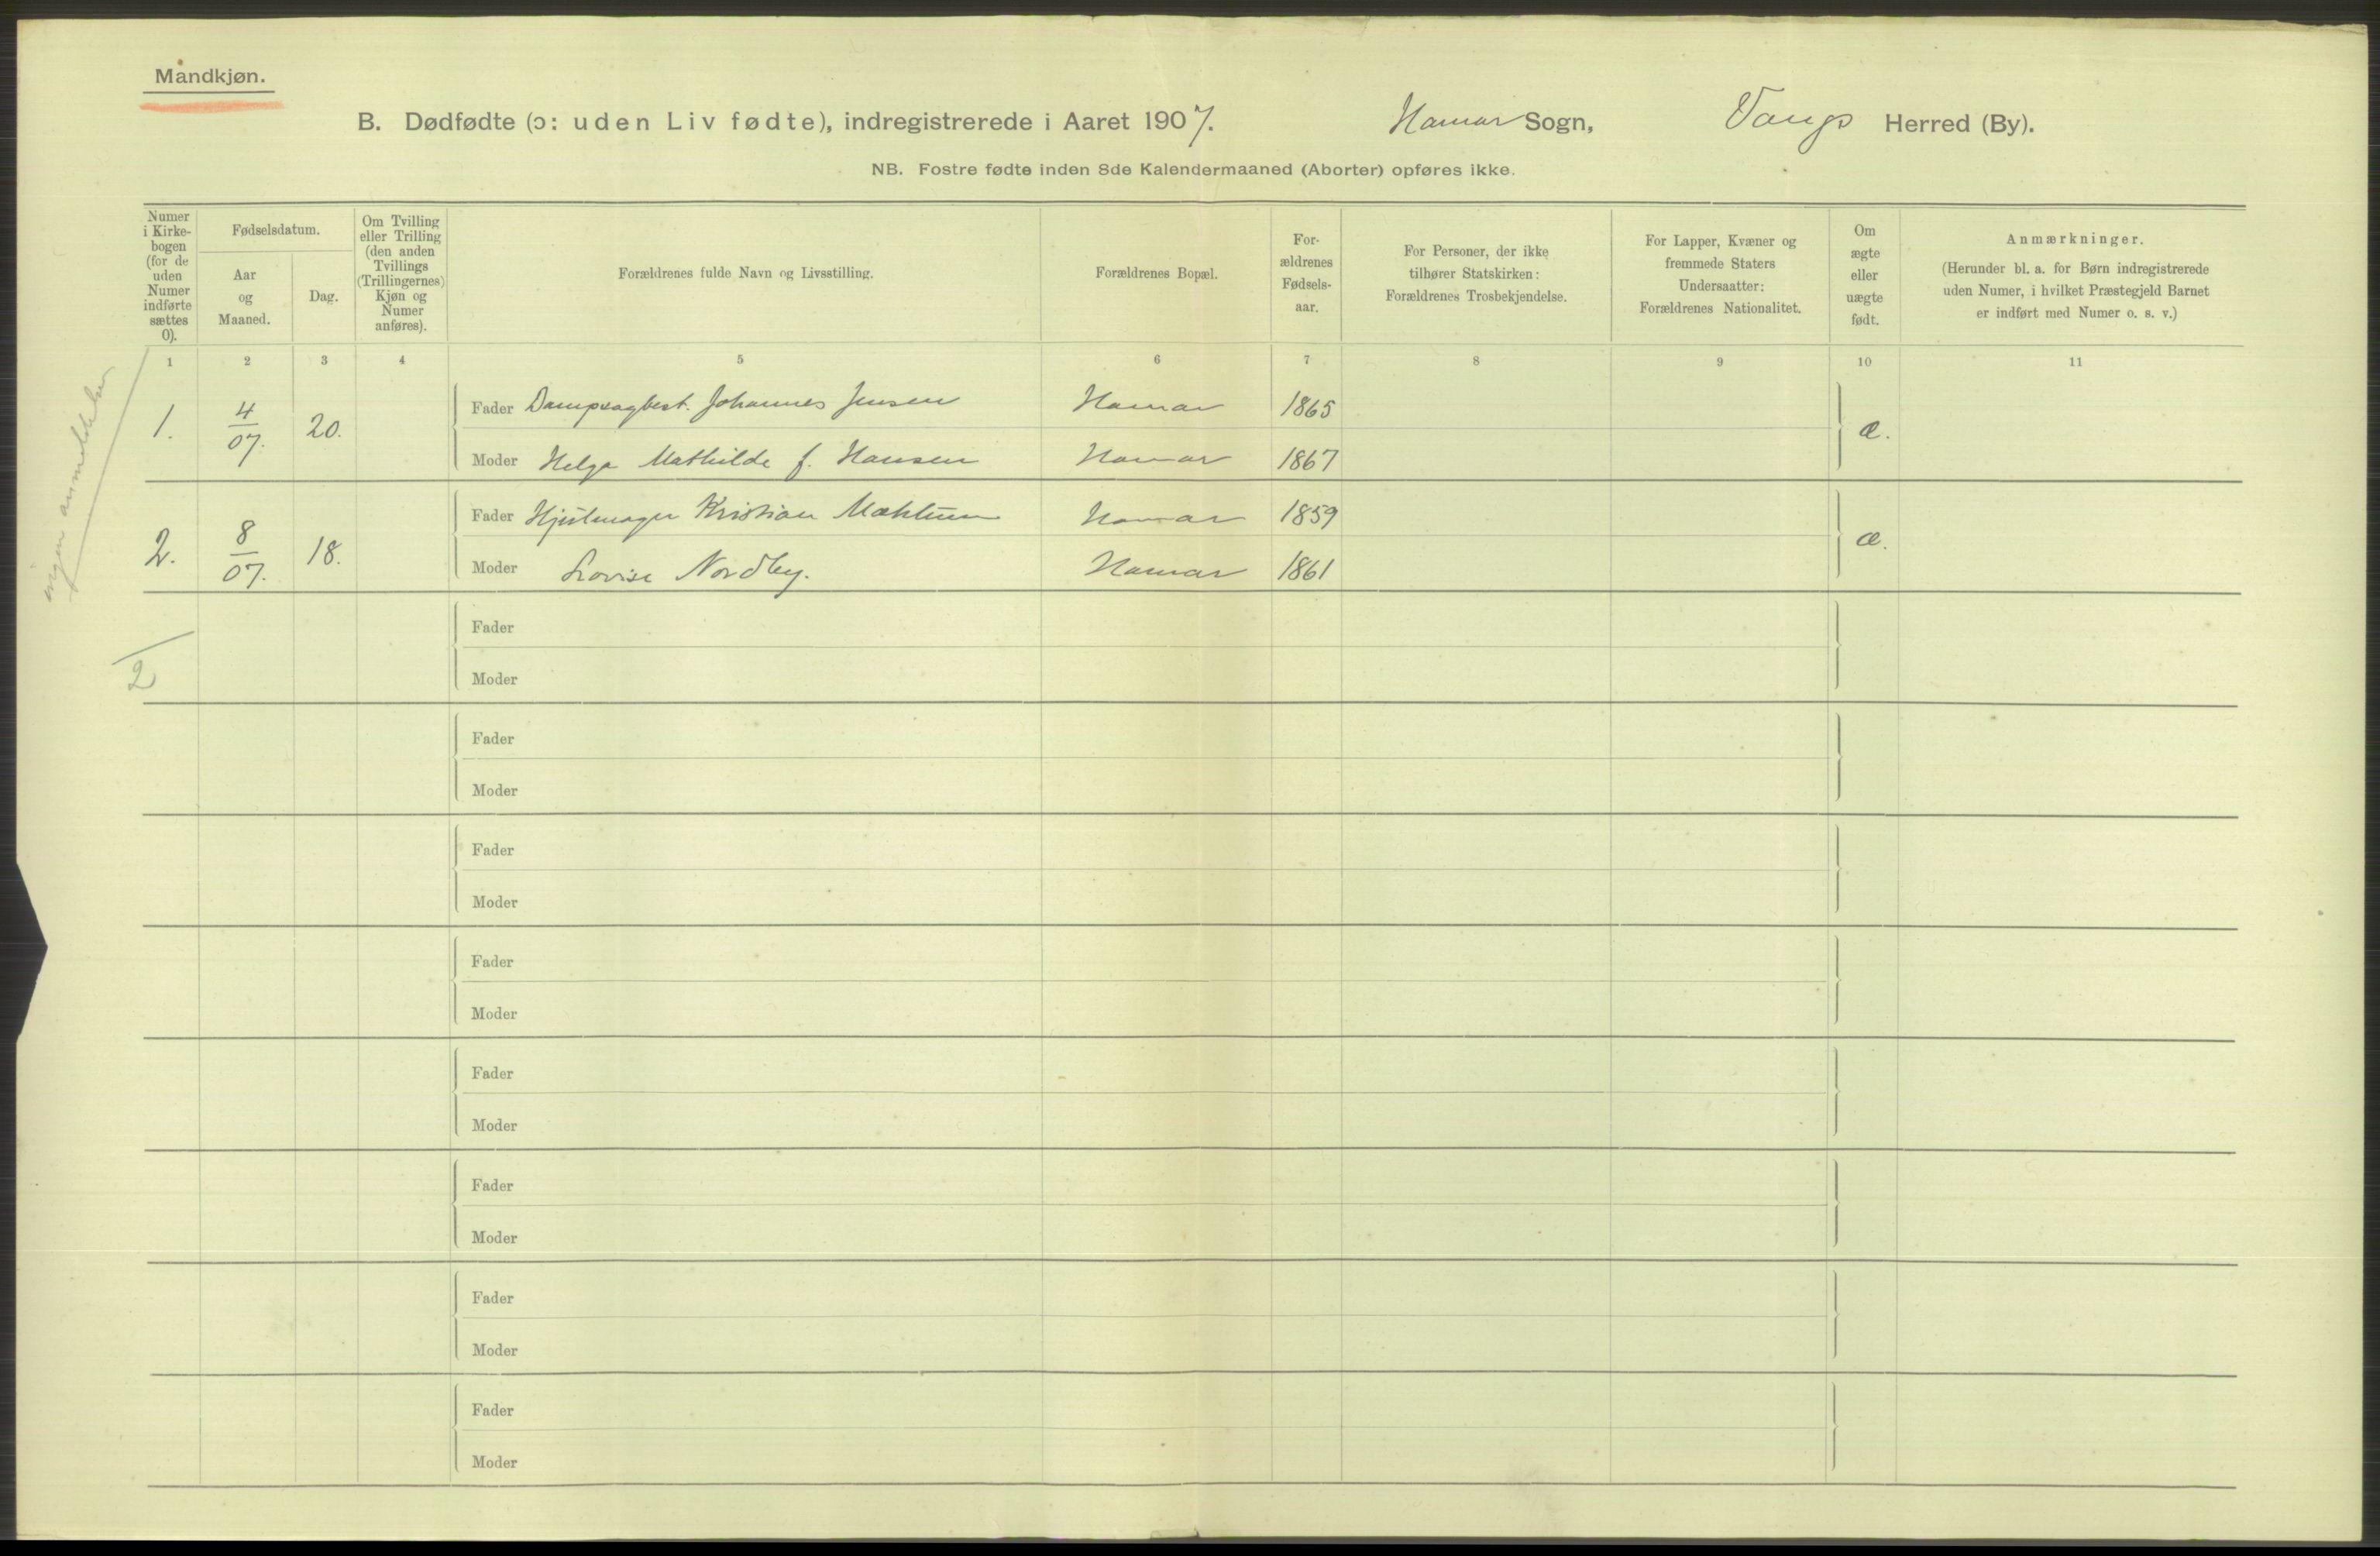 Mandkjøn.
B. Dødfødte (ɔ: uden Liv fødte), indregistrerede i Aaret 1907. Hamar Sogn, Vangs Herred (By).
NB. Fostre fødte inden 8de Kalendermaaned (Aborter) opføres ikke.
Numer i Kirke-bogen (for de uden Numer indførte sættes 0).
Fødselsdatum.
Aar og Maaned.
Dag.
Om Tvilling eller Trilling (den anden Tvillings (Trillingernes) Kjøn og Numer anføres).
Forældrenes fulde Navn og Livsstilling.
Forældrenes Bopæl.
For-ældrenes Fødsels-aar.
For Personer, der ikke tilhører Statskirken: Forældrenes Trosbekjendelse.
For Lapper, Kvæner og fremmede Staters Undersaatter: Forældrenes Nationalitet.
Om ægte eller uægte født.
Anmærkninger.
(Herunder bl. a. for Børn indregistrerede uden Numer, i hvilket Præstegjeld Barnet er indført med Numer o. s. v.)
1 2 3 4 5 6 7 8 9 10 11
1. 4/07. 20. Fader Dampsagbest. Johannes Jensen Hamar 1865 æ.
Moder Helga Mathilde f. Hansen Hamar 1867
2. 8/07. 18. Fader Hjulmager Kristian Mæhlum Hamar 1859 æ.
Moder Lovise Nordby. Hamar 1861
ingen anmeldelse
2
Fader
Moder
Fader
Moder
Fader
Moder
Fader
Moder
Fader
Moder
Fader
Moder
Fader
Moder
Fader
Moder